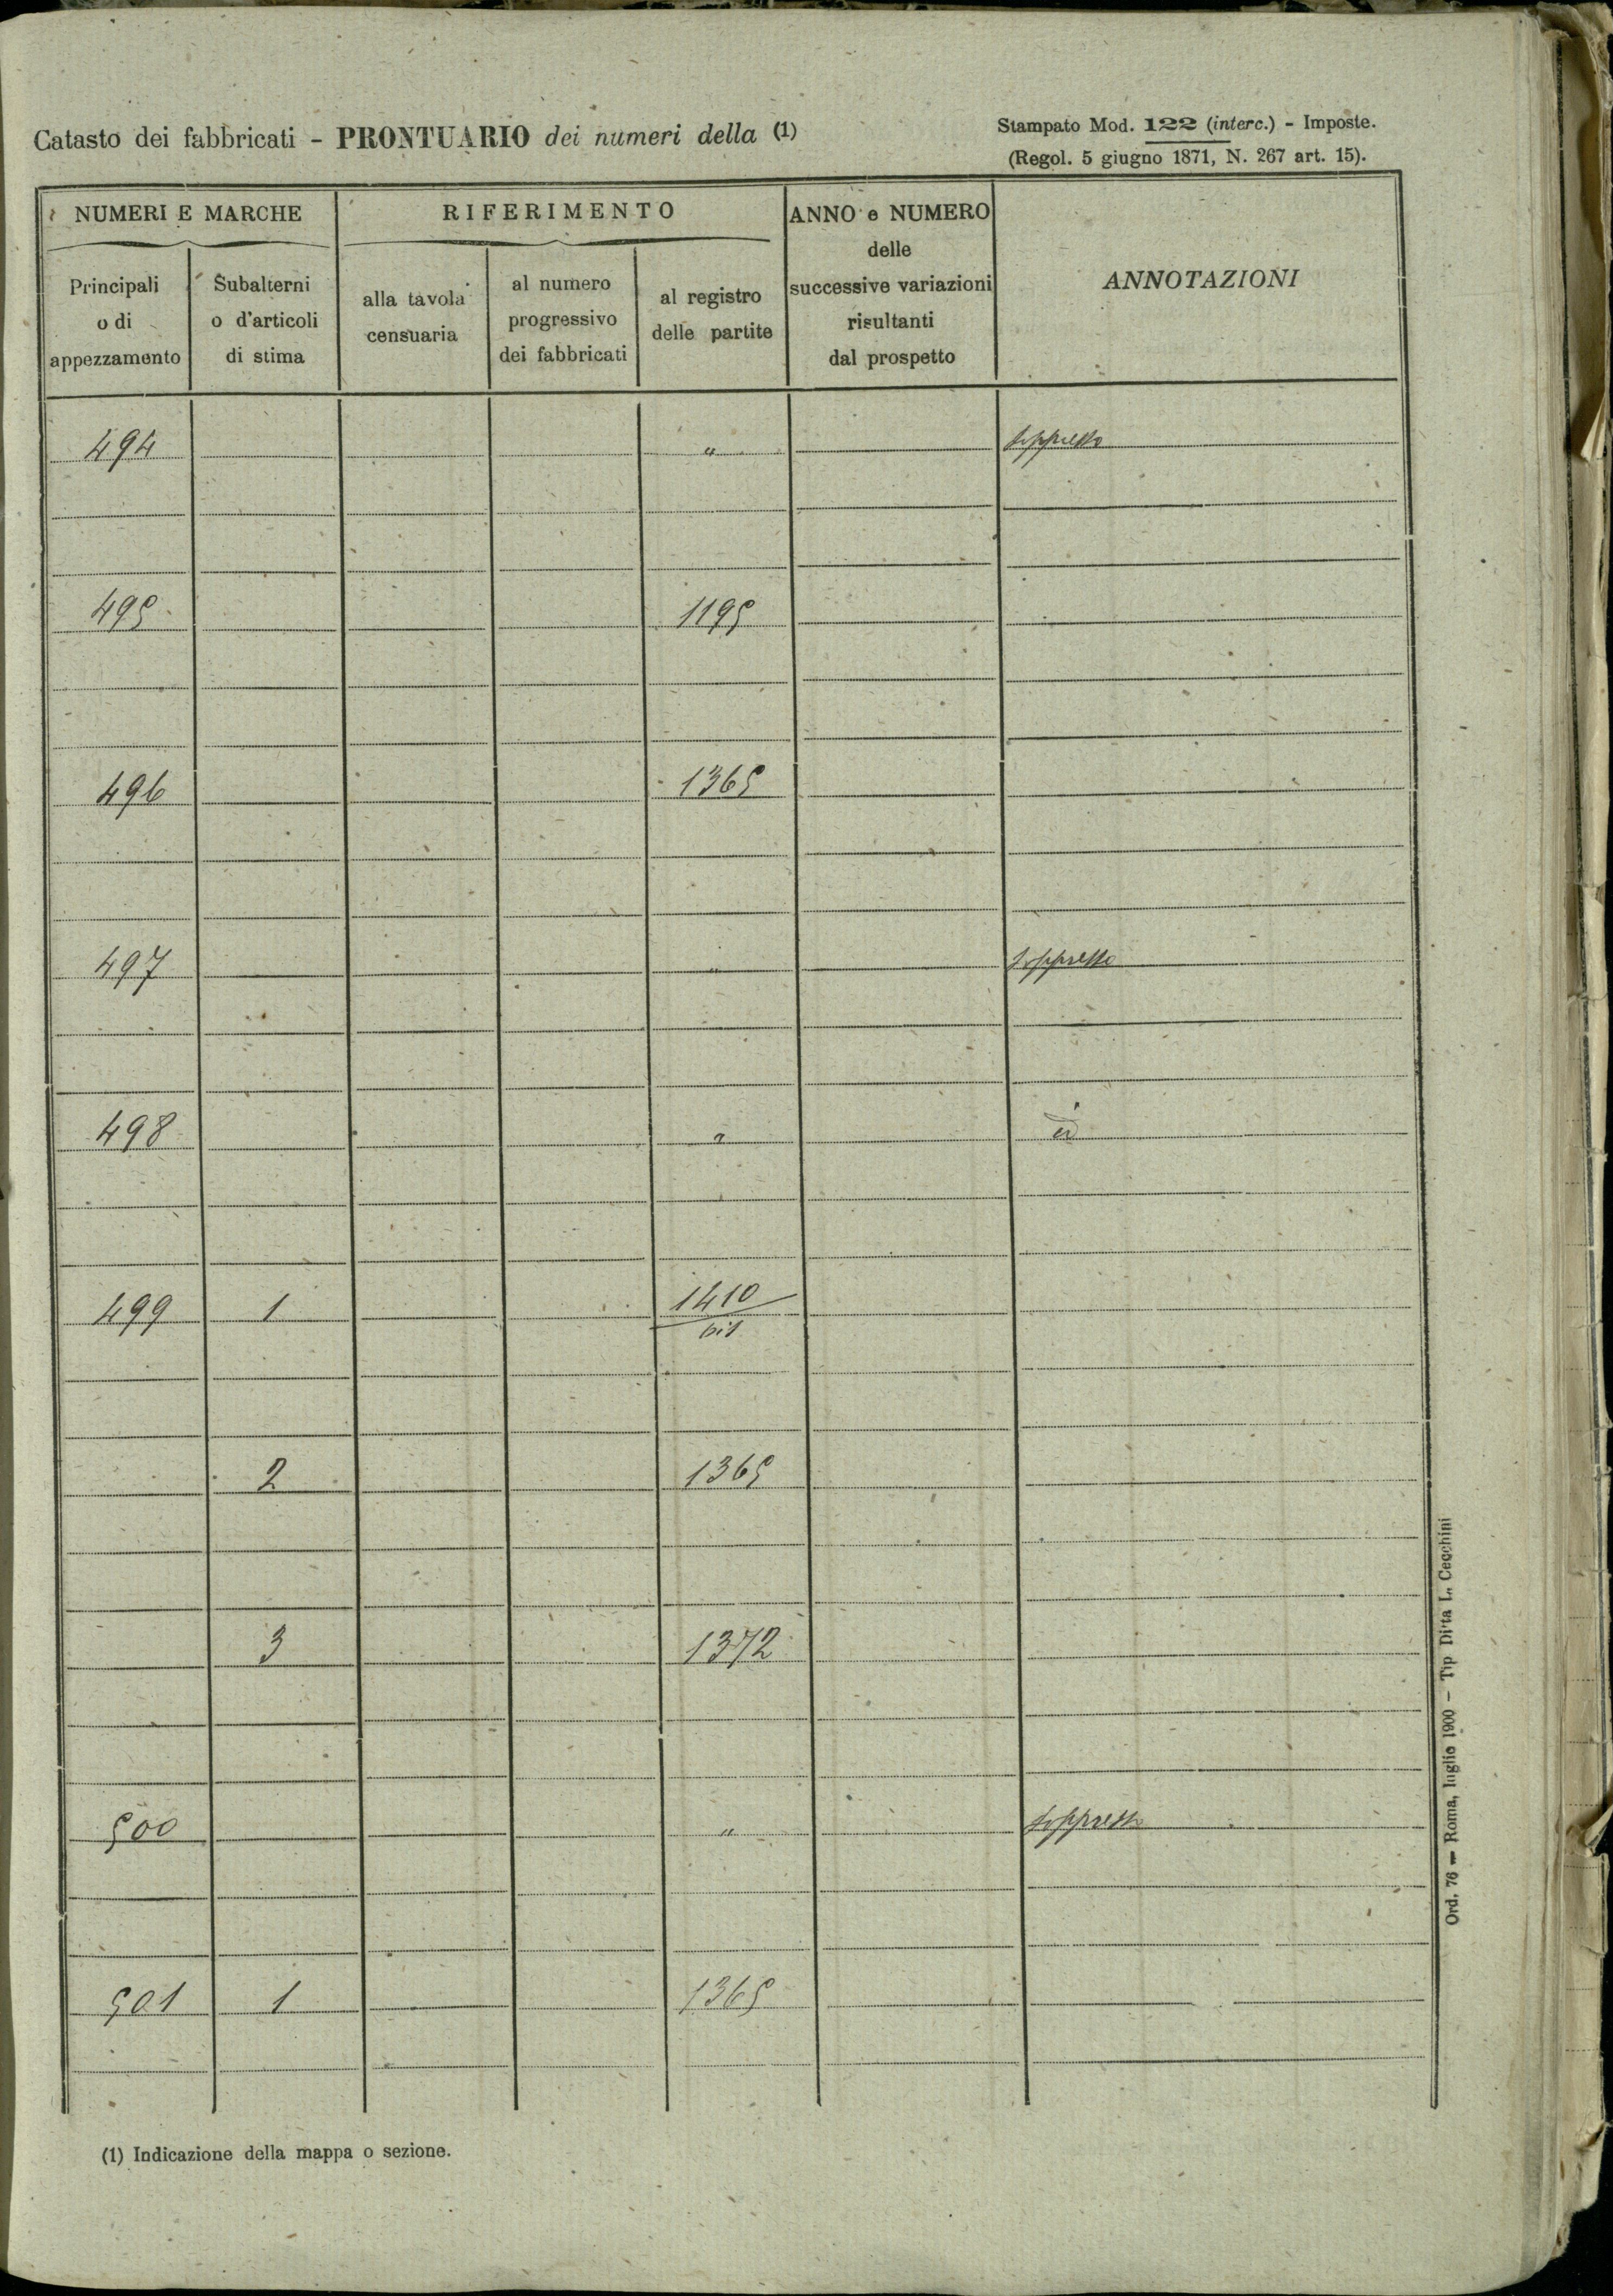 Catasto dei fabbricati - PRONTUARIO dei numeri della (1)
Stampato Mod. 122 (interc.) - Imposte.
(Regol. 5 giugno 1871, N. 267 art. 15).
NUMERI E MARCHE
RIFERIMENTO
ANNO e NUMERO
delle
successive variazioni
risultanti
dal prospetto
ANNOTAZIONI
Principali
o di
appezzamento
Subalterni
o d'articoli
di stima
alla tavola
censuaria
al numero
progressivo
dei fabbricati
al registro
delle partite
494 " soppresso
495 1195
496 1365
497 " soppresso
498 " id
499 1 1410
bis
2 1365
3 1372
500 " soppresso
501 1 1365
(1) Indicazione della mappa o sezione.
Ord. 76 - Roma, luglio 1900 - Tip Ditta L. Cecchini